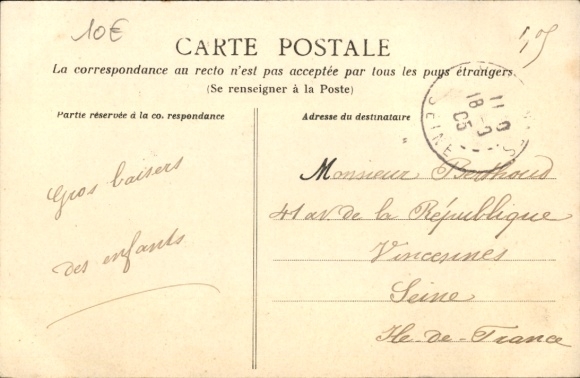 10€
CARTE POSTALE
La correspondance au recto n'est pas acceptée par tous les pays étrangers.
(Se renseigner à la Poste)
Partie réservée à la co. respondance
Adresse du destinataire
11
18
05
SEINE
Gros baisers
des enfants
Monsieur Berthoud
41 av. de la République
Vincennes
Seine
Ile-de-France